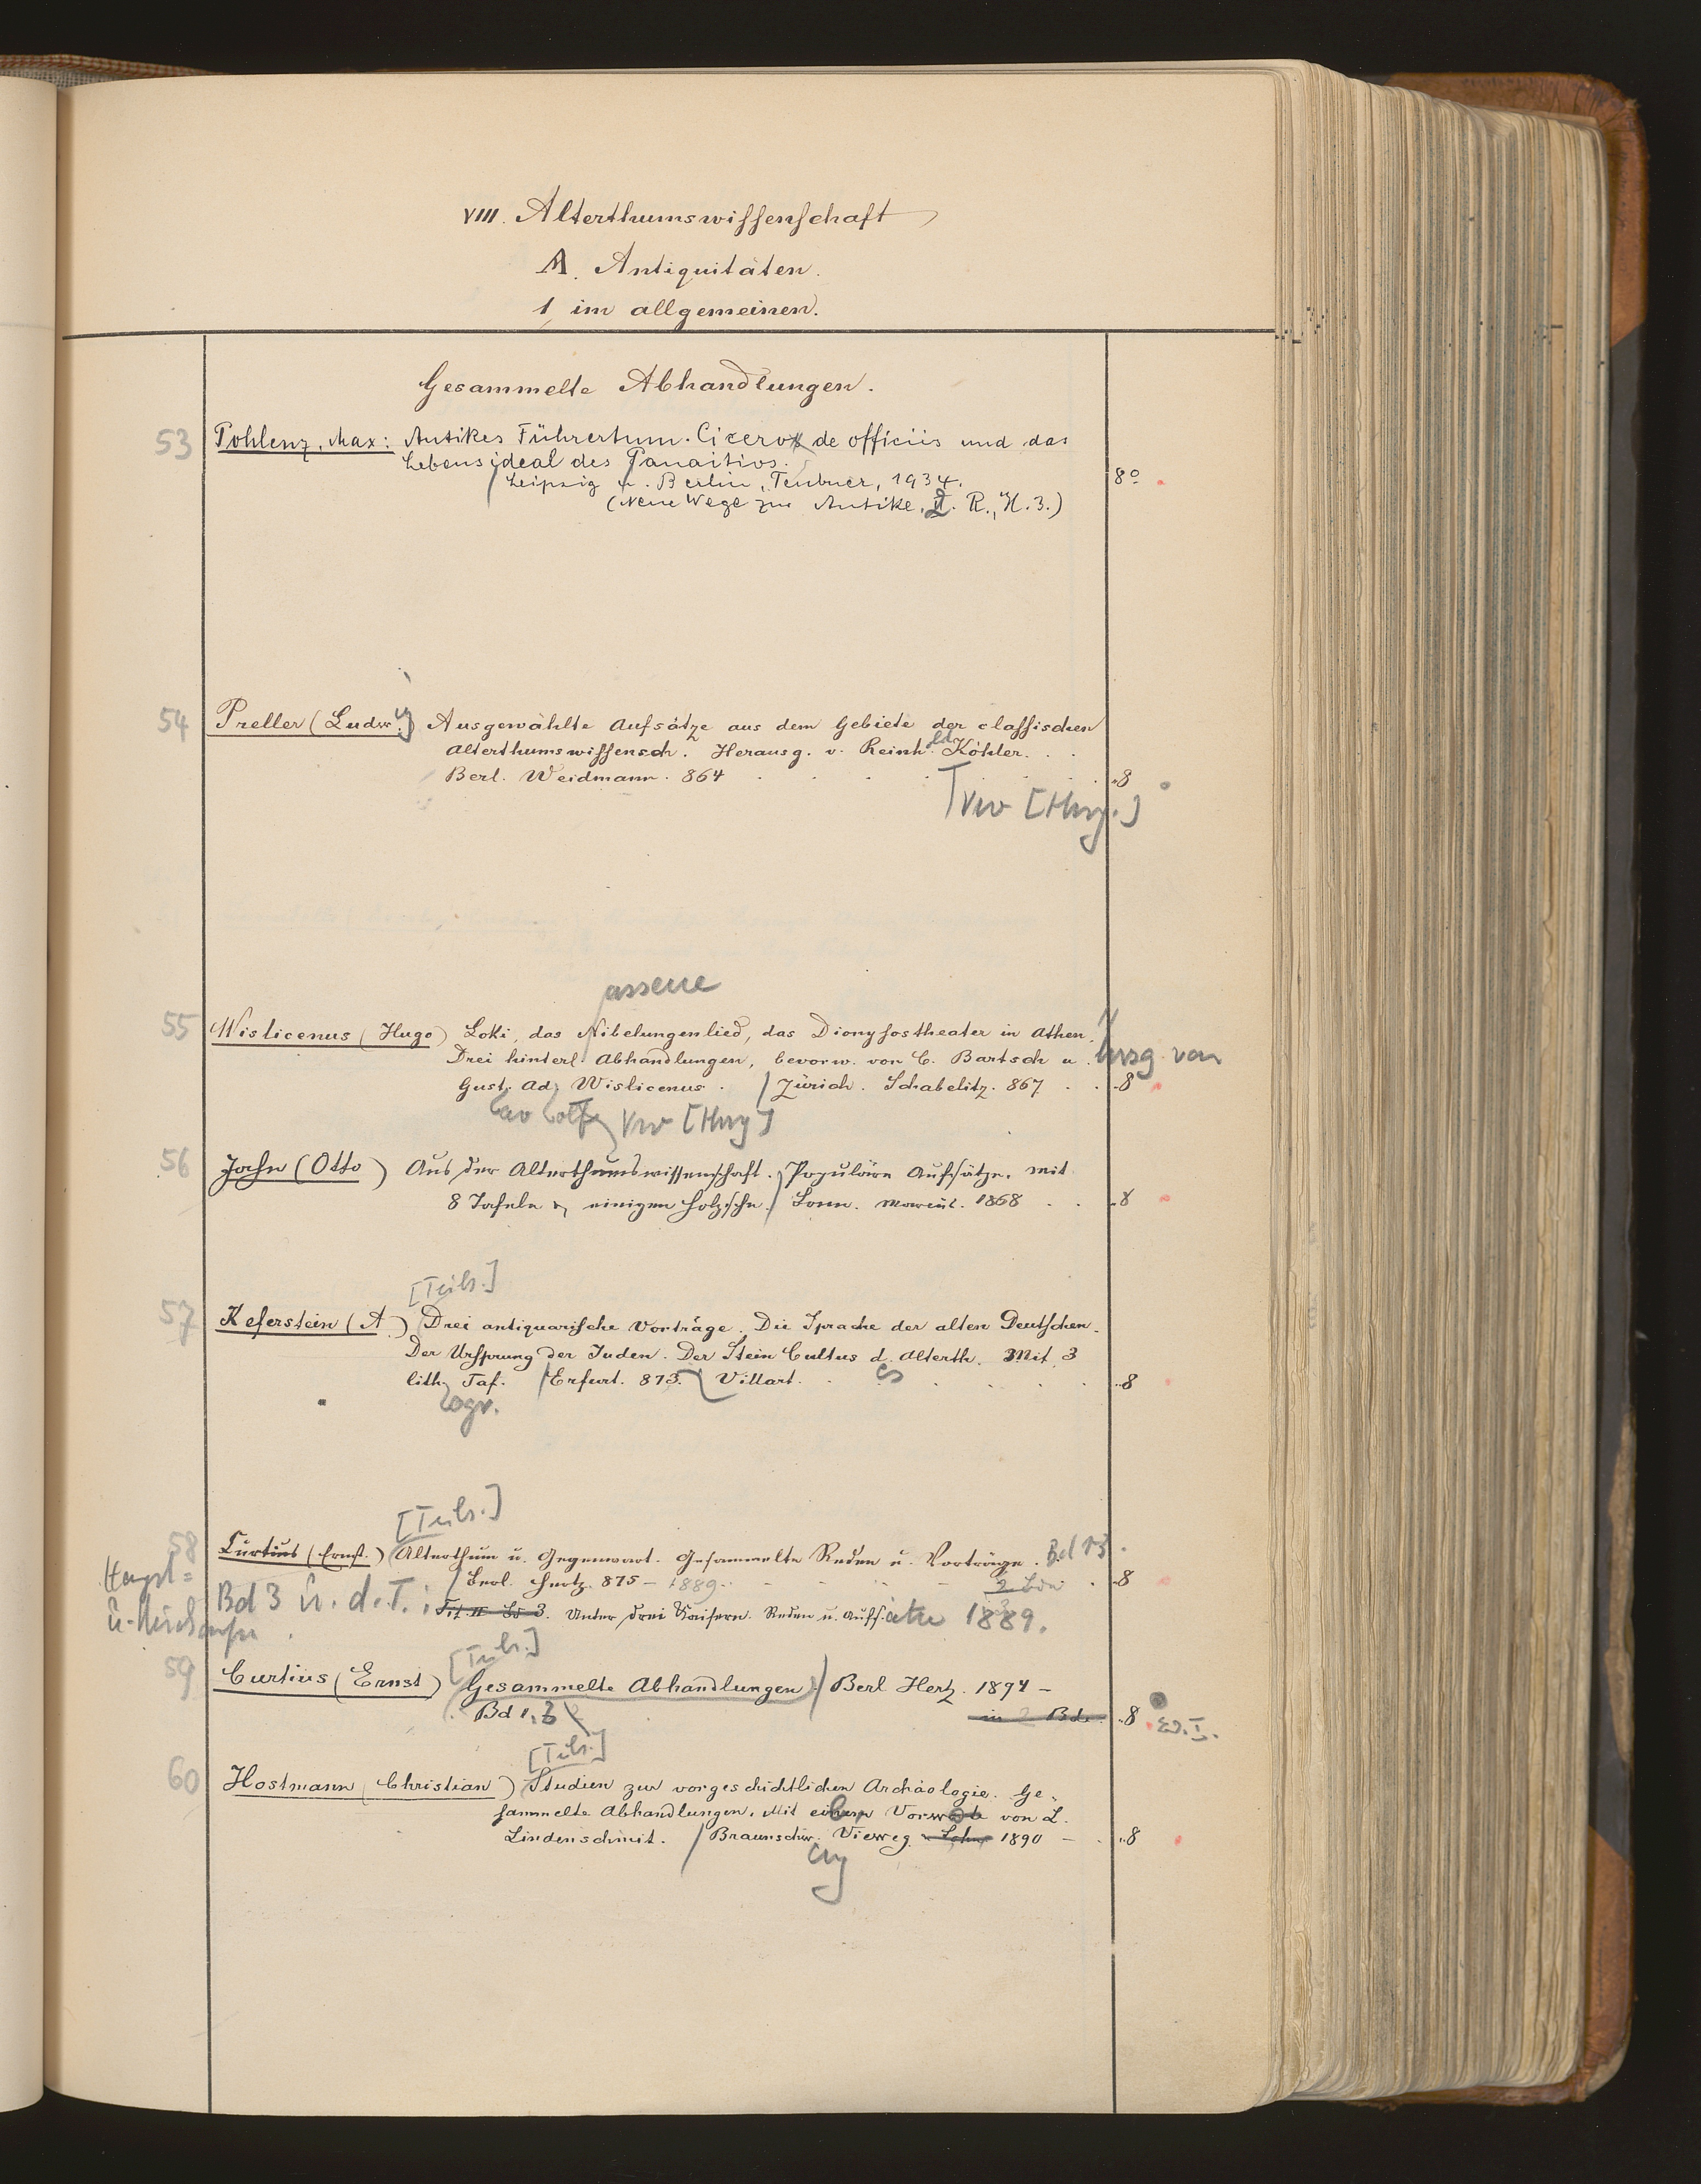 VIII. Alterthumswissenschaft
A. Antiquitäten.
1, im allgemeinen.
Gesammelte Abhandlungen.
53 Pohlenz, Max: Antikes Führertum. Cicero de officiis und das
Lebensideal des Panaitios.
Leipzig u. Berlin, Teubner, 1934. 8°
(Neue Wege zur Antike, II. R., H. 3.)
54 Preller (Ludwig) Ausgewählte Aufsätze aus dem Gebiete der classischen
Alterthumswissensch. Herausg. v. Reinhold Köhler.
Berl. Weidmann. 864 8
Vw [Hrsg.]
assene
55 Wislicenus (Hugo) Loki, das Nibelungenlied, das Dionysostheater in Athen.
Drei hinterl. Abhandlungen, bevorw. von C. Bartsch u. hrsg. von
Gust. Ad. Wislicenus. / Zürich. Schabelitz. 867. 8
Vw [Hrsg]
56 Jahn (Otto) Aus der Alterthumswissenschaft. Populäre Aufsätze. Mit
8 Tafeln u. einigen Holzschn. / Bonn. Marcus. 1868 8
[Teils.]
57 Keferstein (A.) Drei antiquarische Vorträge. Die Sprache der alten Deutschen.
Der Ursprung der Juden. Der Stein Cultus d. Alterth. Mit 3
lith. Taf. / Erfurt. 873. Villart. 8
es
ogr.
[Teils.]
58 Curtius (Ernst.) Alterthum u. Gegenwart. Gesammelte Reden u. Vorträge. Bd 1.3.
Berl. Hertz. 875 – 1889. 2 Bde 8
Bd 3 u. d. T.: Tit. II Bd 3. Unter drei Kaisern. Reden u. Aufsätze 1889.
[Teils.]
59 Curtius (Ernst) Gesammelte Abhandlungen / Berl Hertz. 1894 –
Bd 1. 2 in 2 Bde. 8
[Teils.]
60 Hostmann (Christian) Studien zur vorgeschichtlichen Archäologie. Ge-
sammelte Abhandlungen. Mit einem Vorwort von L.
Lindenschmit. / Braunschw. Vieweg 1890 – 8